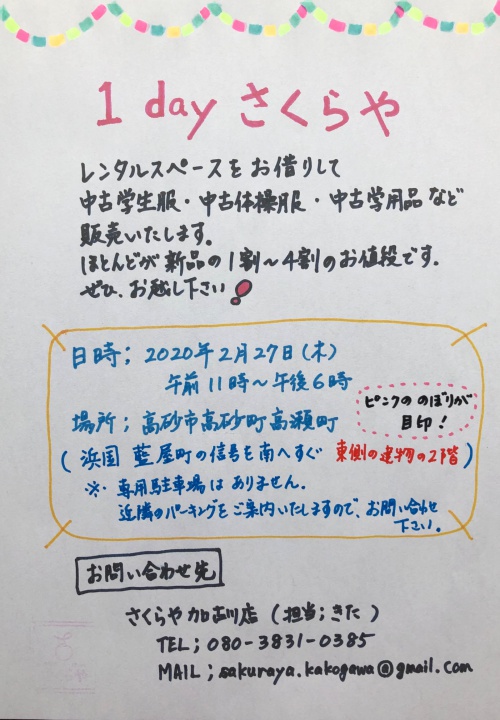 1 day さくらや
レンタルスペースをお借りして
中古学生服・中古体操服・中古学用品など
販売いたします。
ほとんどが新品の1割～4割のお値段です。
ぜひ、お越し下さい！
日時；2020年2月27日(木)
午前11時～午後6時
場所；高砂市高砂町高瀬町
ピンクののぼりが
目印！
(浜国 藍屋町の信号を南へすぐ 東側の建物の2階)
※ 専用駐車場はありません。
近隣のパーキングをご案内いたしますので、お問い合わせ
下さい。
お問い合わせ先
さくらや加古川店(担当；きた)
TEL；080-3831-0385
MAIL；sakuraya.kakogawa@gmail.com